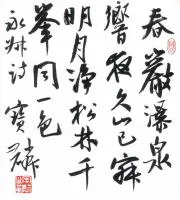 春巖瀑泉
響夜久山已寂
明月淨松林千
峯同一色
永琳诗 寶麟